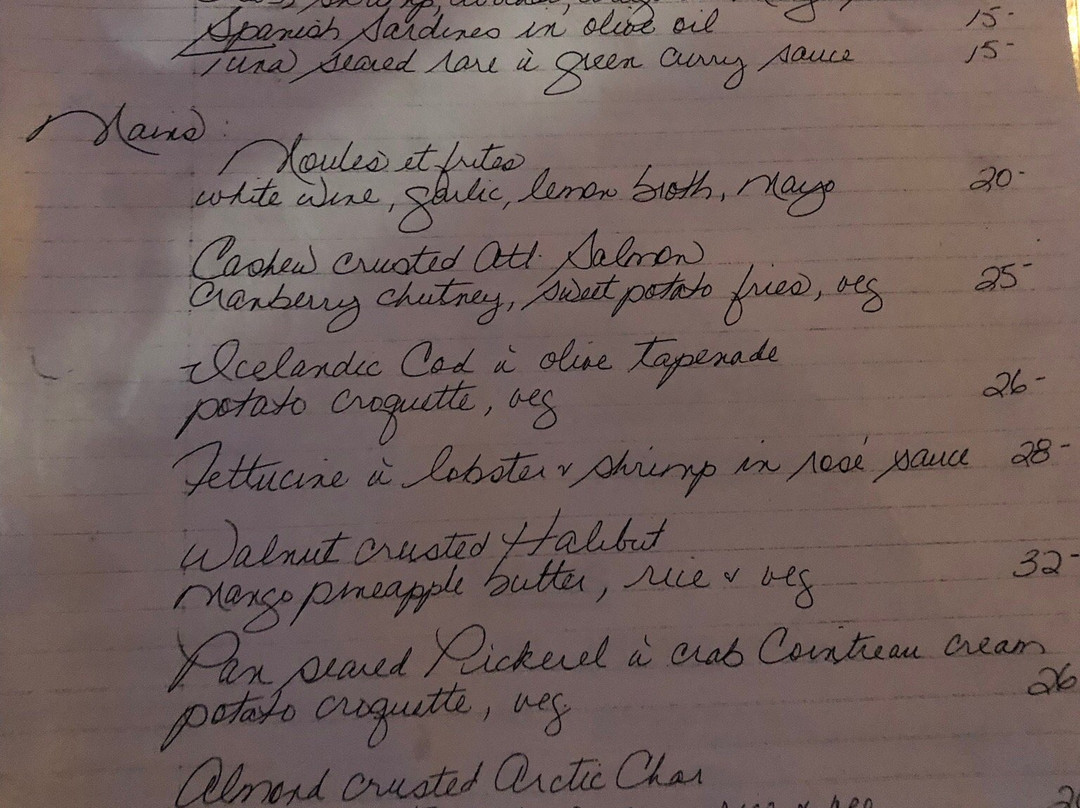 Spanish Sardines in olive oil 15-
Tuna seared rare ū green curry sauce 15-
Mains:
Moules et frites
white wine, garlic, lemon broth, Mayo 20-
Cashew crusted Atl. Salmon
Cranberry chutney, sweet potato fries, veg 25-
Icelandic Cod ū olive tapenade
potato croquette, veg 26-
Fettucine ū lobster & shrimp in rosé sauce 28-
Walnut crusted Halibut
Mango pineapple butter, rice & veg 32-
Pan seared Pickerel ū crab Cointreau cream
potato croquette, veg 26
Almond crusted Arctic Char